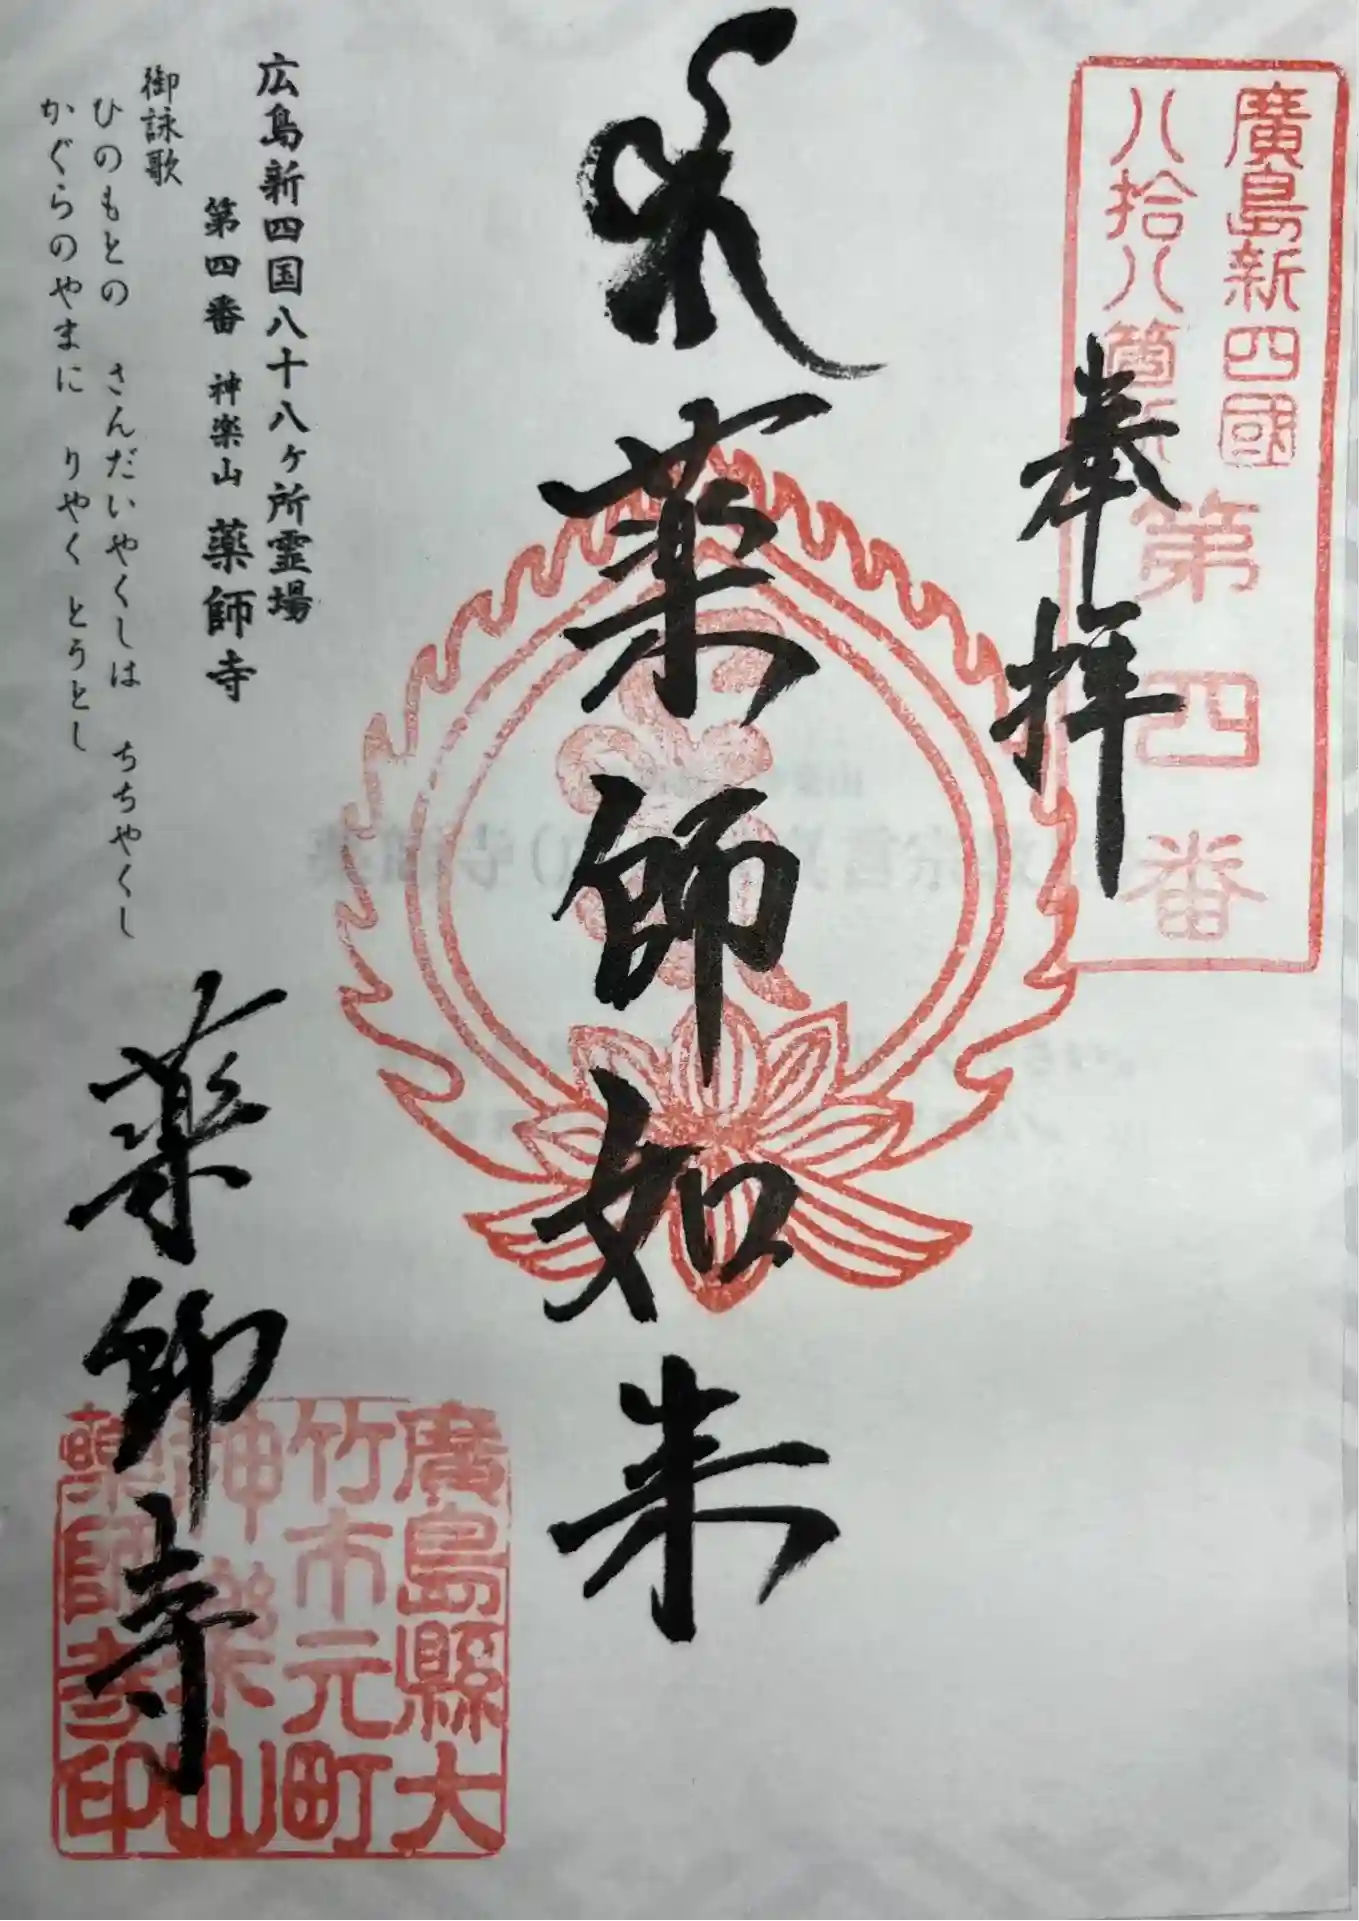 廣島新四國
八拾八箇所
第四番
奉拝
薬師如来
広島新四国八十八ヶ所霊場
第四番 神楽山 薬師寺
御詠歌
ひのもとの さんだいやくしは ちちやくし
かぐらのやまに りやく とうとし
薬師寺
廣島縣大
竹市元町
神樂山
藥師寺印